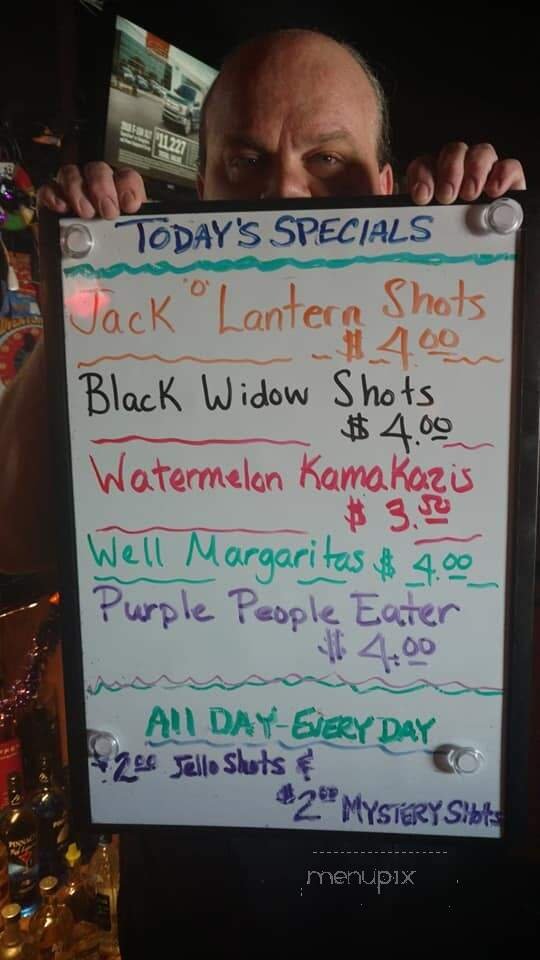 $11,227
TODAY'S SPECIALS
Jack "O" Lantern Shots
$4.00
Black Widow Shots
$4.00
Watermelon Kamakazis
$3.50
Well Margaritas $4.00
Purple People Eater
$4.00
All DAY-EVERY DAY
$2.00 Jello Shots &
$2.00 MYSTERY Shots
menupix